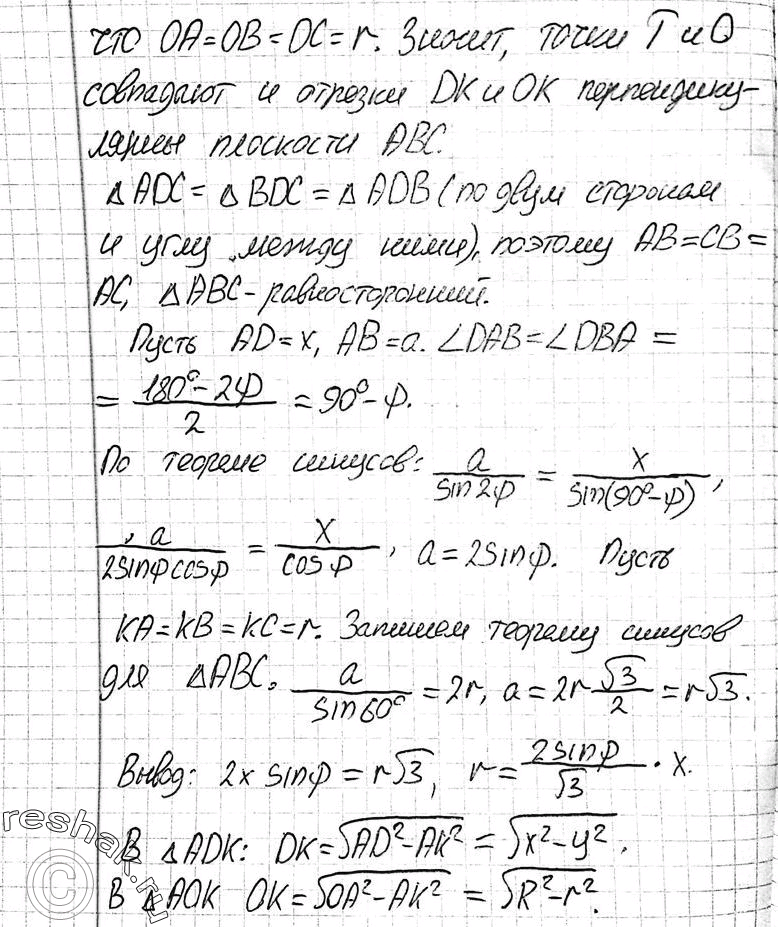 что OA=OB=OC=r. Значит, точки T и O
совпадают и отрезки DK и OK перпендику-
лярны плоскости ABC.
△ADC = △BDC = △ADB (по двум сторонам
и углу между ними), поэтому AB=CB=
AC, △ABC - равносторонний.
Пусть AD=x, AB=a. ∠DAB=∠DBA =
= (180°-2φ)/2 = 90°-φ.
По теореме синусов: a/sin2φ = x/sin(90°-φ),
a/2sinφcosφ = x/cosφ, a=2sinφ. Пусть
KA=KB=KC=r. Запишем теорему синусов
для △ABC: a/sin60° = 2r, a=2r √3/2 = r√3.
Вывод: 2x sinφ = r√3, r = 2sinφ/√3 · x.
В △ADK: DK=√(AD²-AK²) = √(x²-y²).
В △AOK OK=√(OA²-AK²) = √(R²-r²).
reshak.ru
©